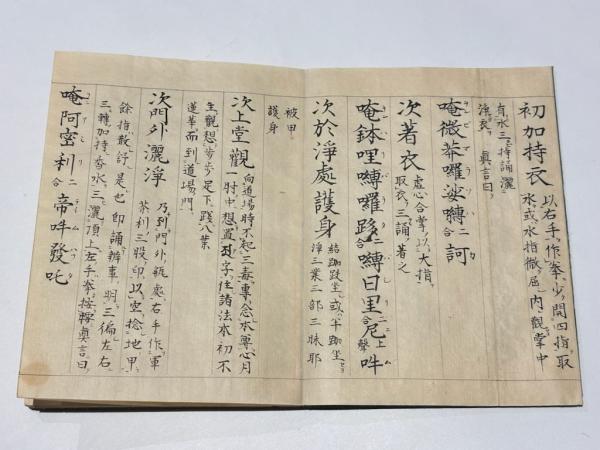 初加持衣 以右手作拳少開四指取
水或水指微屈内觀掌中
有水三持誦灑
淨衣 真言曰
唵微莽囉娑嚩二合訶
次著衣 虛心合掌以大指
取衣三誦著之
唵鉢哩嚩囉跢二合嚩日里二尼上聲吽
次於淨處護身 結跏趺坐或半跏坐
淨三業三部三昧耶
被甲
護身
次上堂觀 向道場時不起三毒專念本尊心月
一肘中想置字住諸法本初不
生觀想步步足下踐八葉
蓮華而到道場門
次門外灑淨 乃到門外瓶處右手作軍
荼利三股印以空捻地甲
餘指散舒是也即誦辦事明三遍左右
三轉加持香水三灑頂上左手拳按腰真言曰
唵阿密利二合帝吽發吒